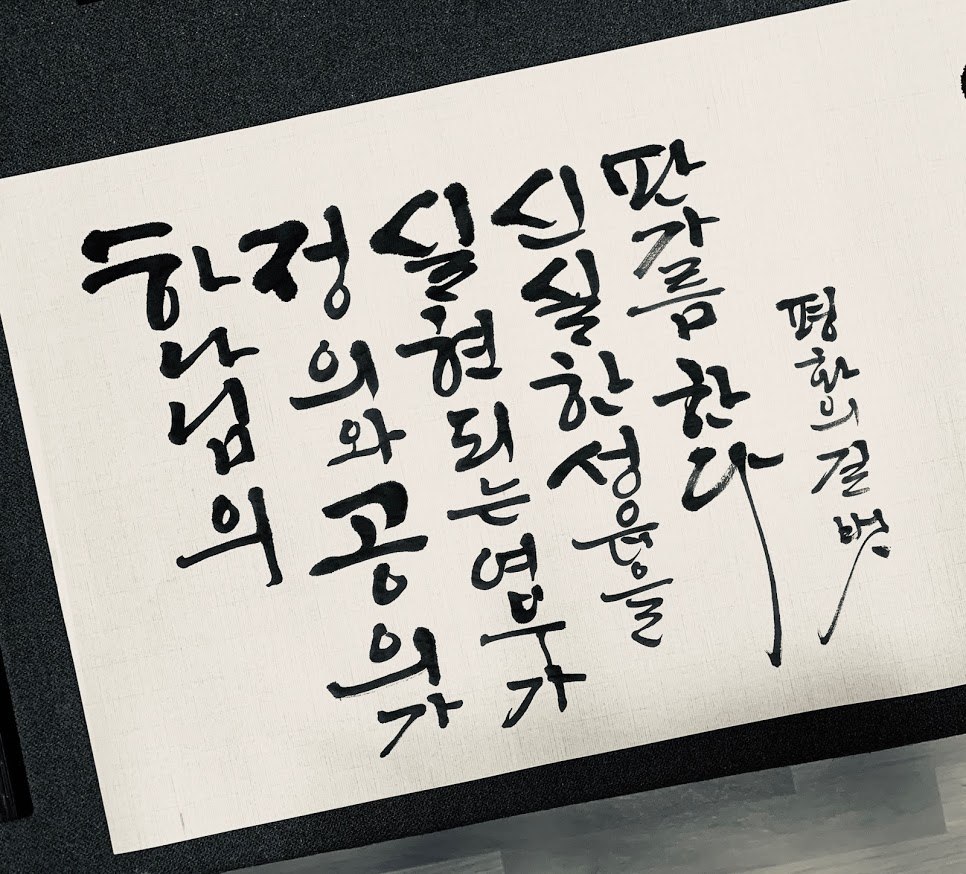 하나님의
정의와 공의가
실현되는 여부가
신실한 성읍을
판가름 한다
평화의 길벗